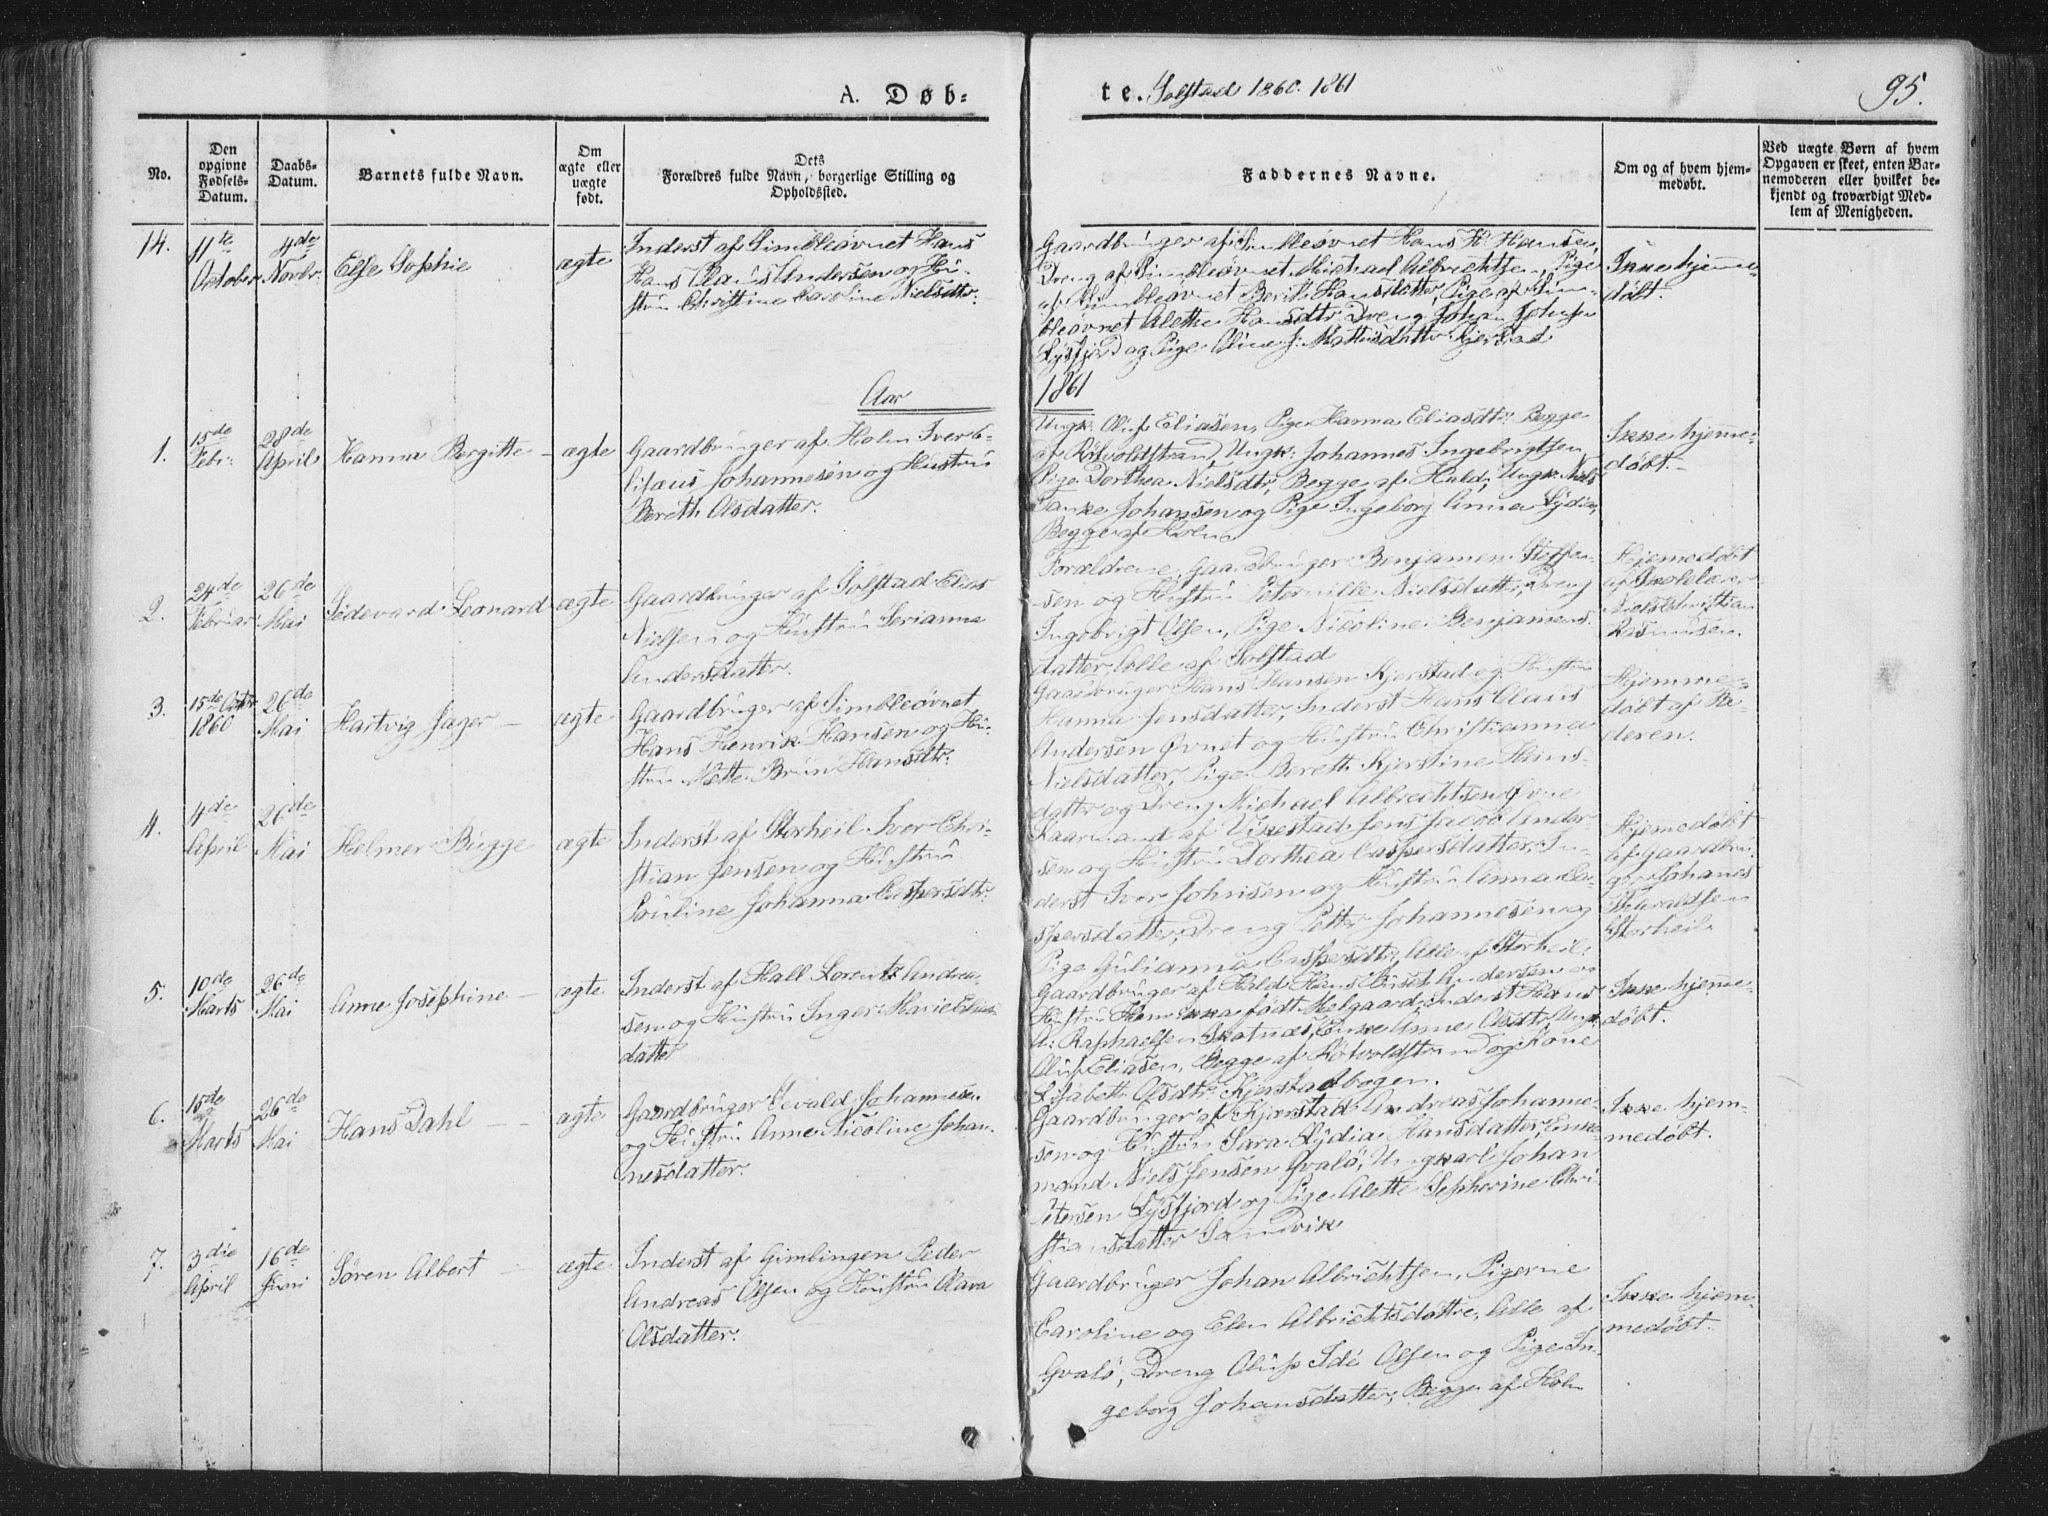 A. Døb-
te. Solstad 1860. 1861
95.
No.
Den opgivne Fødsels-Datum.
Daabs-Datum.
Barnets fulde Navn.
Om ægte eller uægte født.
Dets Forældres fulde Navn, borgerlige Stilling og Opholdssted.
Faddernes Navne.
Om og af hvem hjem-medøbt.
Ved uægte Børn af hvem Opgaven er skeet, enten Bar-nemoderen eller hvilket be-kjendt og troværdigt Med-lem af Menigheden.
14.
11te October
4de Novbr:
Else Sophie
ægte
Inderst af Simbleøvnet Hans
Hans Claus Andersen og Hu-
stru Christine Caroline Nielsdtr:
Gaardbruger af Simbleøvnet Hans H: Hansen,
Dreng af Simbleøvnet Michael Albrechtsen, Pige
af Simbleøvnet Berith Hansdatter, Pige af Sim-
bleøvnet Alette Hansdtr Dreng Johan Johns:
Lysfjord og Pige Oline J: Mathisdatter Kjerstad
Ikke hjemme-
døbt.
Aar
1861
1.
15de Febr:
28de April
Hanna Bergitte
ægte
Gaardbruger af Holm Iver E-
lisæus Johannesen og Hustru
Bereth Olsdatter.
Ungk: Oluf Eliasen, Pige Hanna Eliasdtr: Begge
af Rötvoldstrand, Ungk: Johannes Ingebrigtsen
Pige Dorthea Nielsdtr, Begge af Hald, Ungk: Niels
Tanke Johansen og Pige Ingeborg Anna Lydia,
Begge af Holm
Ikke hjemme-
døbt.
2.
24de Februar
26de Mai
Sedevard Leonard
ægte
Gaardbruger af Solstad Elias
Nielsen og Hustru Serianna
Andersdattr.
Forældrene, Gaardbruger Benjamen Steffen-
sen og Hustru Peternille Nielsdatter, Dreng
Ingebrigt Olsen, Pige Nicoline Benjamens-
datter, Alle af Solstad
Hjemedøbt
af Skolelærer
Niels Christian
Rasmusen.
3.
15de Octbr 1860
26de Mai
Hartvig Jager
ægte
Gaardbruger af Simbleøvnet
Hans Henrik Hansen og Hu-
stru Mette Brun Hansdtr:
Gaardbruger Hans Hansen Kjerstad og Hustru
Hanna Jensdatter, Inderst Hans Claus
Andersen Øvnet og Hustru Christianna
Nielsdatter, Pige Bereth Kjerstine Hans-
dattr og Dreng Michael Albrechtsen Øvne
Hjemme-
døbt af Fa-
deren.
4.
4de April
26de Mai
Helmer Bugge
ægte
Inderst af Storheil Iver Chri-
stian Jensen og Hustru
Pouline Johanna Caspersdtr:
Kaarmand af Vikestad Jens Jacob Ander-
sen og Hustru Dorthea Caspersdatter, In-
derst Iver Johnsen og Hustru Anna Ca-
spersdatter, Dreng Petter Johannesen og
Pige Gulianna Caspersdtr, Alle af Storheil.
Hjemedøbt
af Gaardbru-
ger Johanes
Haraldsen
Storheil.
5.
10de Marts
26de Mai
Anne Josephine
ægte
Inderst af Hall Lorentz Andrea-
sen og Hustru Inger Marie Elias-
datter
Gaardbruger af Hald Hans Buschl Andersen og
Hustru Henrikka født Melgaard, Inderst Hans
A: Raphaelsen Skotnæs, Enke Anne Olsdtr, Ungk:
Oluf Eliasen, Begge af Rötvoldstrand og Kone
Lisabeth Olsdtr: Kjerstadbogen.
Ikke hjemme-
døbt.
6.
15de Marts
26de Mai
Hans Dahl
ægte
Gaardbruger Sevald Johannesen
og Hustru Anne Nicoline Johan-
nesdatter.
Gaardbruger af Kjærstad Andreas Johanne-
sen og Hustru Sara Lydia Hansdatter, Enke-
mand Niels Jensen Qvalö, Ungkarl Johan
Petersen Lysfjord og Pige Alette Sepherine Chri-
stiansdatter Sandvik
Ikke hjem-
medöbt.
7.
3die April
16de Juni
Søren Albert
ægte
Inderst af Gimlingen Peder
Andreas Olsen og Hustru Olava
Olsdatter.
Gaardbruger Johan Albrichtsen, Pigerne
Caroline og Elen Albrichtsdøttre, Alle af
Qvalö, Dreng Oluf Idé Olsen og Pige In-
geborg Johansdatter, Begge af Holm
Ikke hjem-
medöbt.